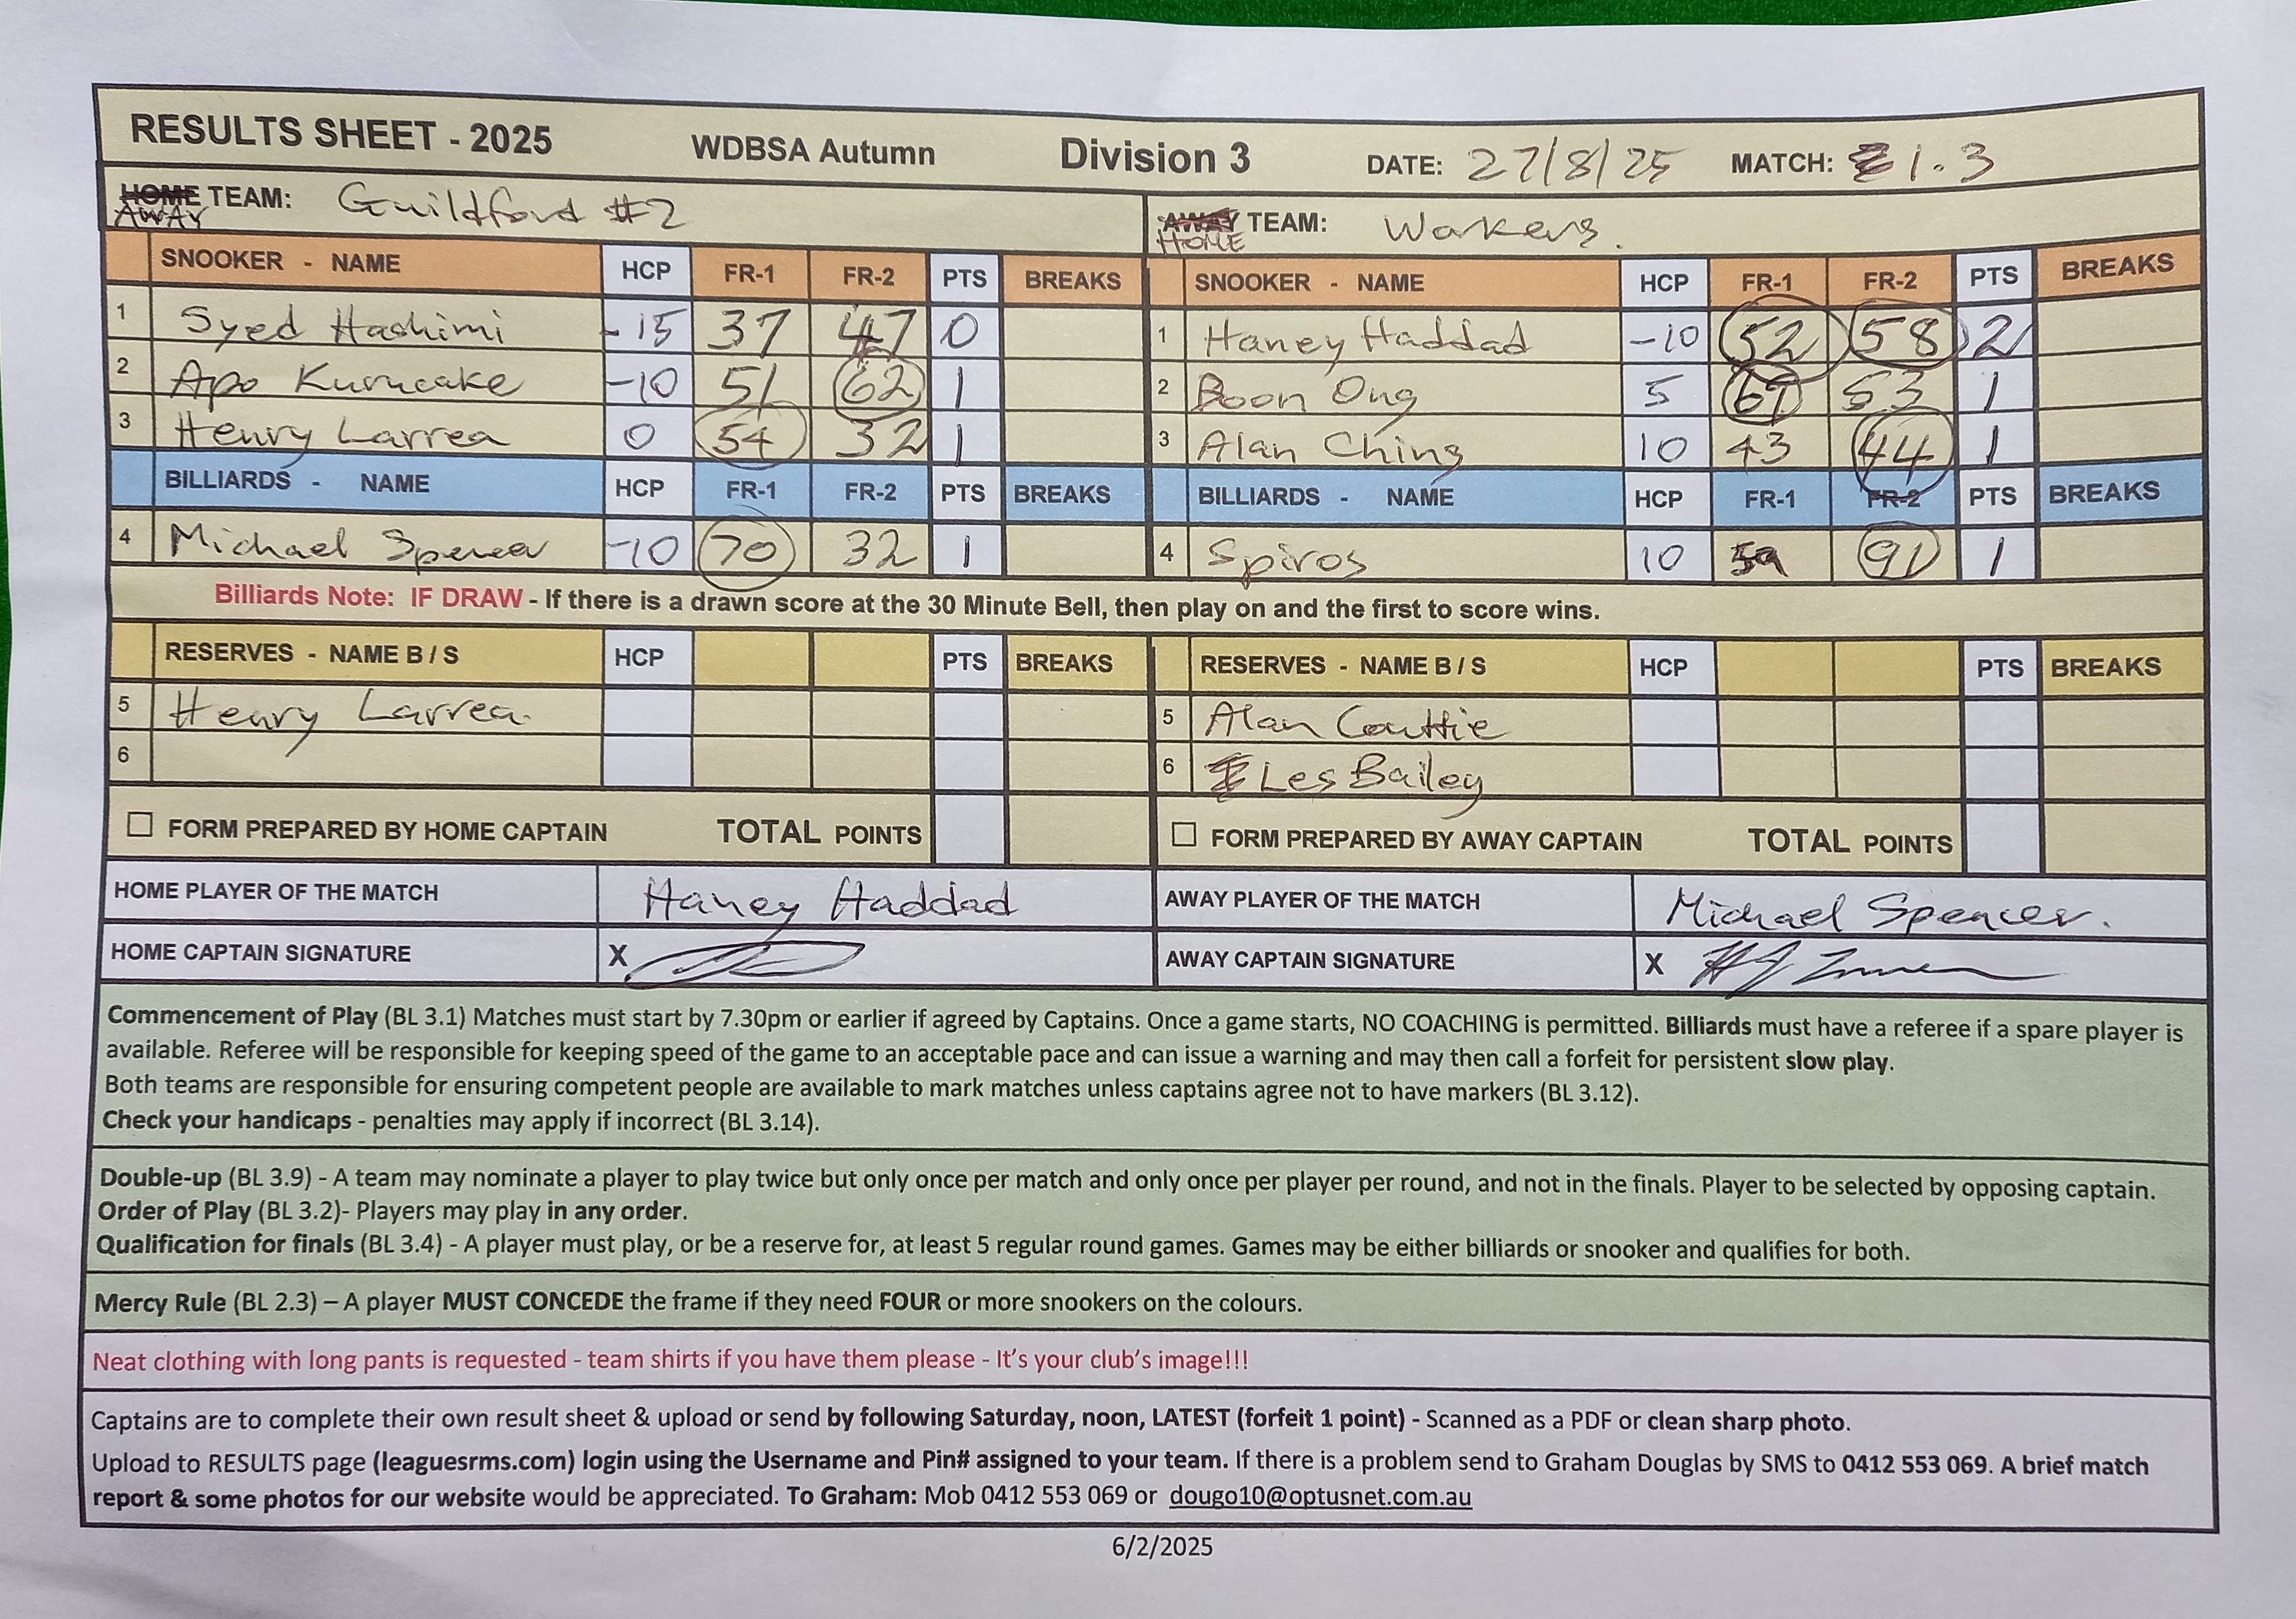 RESULTS SHEET - 2025 WDBSA Autumn Division 3 DATE: 27/8/25 MATCH: 1.3
HOME TEAM: Guildford #2 AWAY TEAM: Workers.
AWAY HOME
SNOOKER - NAME HCP FR-1 FR-2 PTS BREAKS SNOOKER - NAME HCP FR-1 FR-2 PTS BREAKS
1 Syed Hashimi -15 37 47 0 1 Haney Haddad -10 52 58 2
2 Apo Kurucake -10 51 62 1 2 Boon Ong 5 67 53 1
3 Henry Larrea 0 54 32 1 3 Alan Ching 10 43 44 1
BILLIARDS - NAME HCP FR-1 FR-2 PTS BREAKS BILLIARDS - NAME HCP FR-1 FR-2 PTS BREAKS
4 Michael Spencer -10 70 32 1 4 Spiros 10 59 91 1
Billiards Note: IF DRAW - If there is a drawn score at the 30 Minute Bell, then play on and the first to score wins.
RESERVES - NAME B / S HCP PTS BREAKS RESERVES - NAME B / S HCP PTS BREAKS
5 Henry Larrea. 5 Alan Couttie
6 6 Les Bailey
FORM PREPARED BY HOME CAPTAIN TOTAL POINTS FORM PREPARED BY AWAY CAPTAIN TOTAL POINTS
HOME PLAYER OF THE MATCH Haney Haddad AWAY PLAYER OF THE MATCH Michael Spencer.
HOME CAPTAIN SIGNATURE X AWAY CAPTAIN SIGNATURE X
Commencement of Play (BL 3.1) Matches must start by 7.30pm or earlier if agreed by Captains. Once a game starts, NO COACHING is permitted. Billiards must have a referee if a spare player is
available. Referee will be responsible for keeping speed of the game to an acceptable pace and can issue a warning and may then call a forfeit for persistent slow play.
Both teams are responsible for ensuring competent people are available to mark matches unless captains agree not to have markers (BL 3.12).
Check your handicaps - penalties may apply if incorrect (BL 3.14).
Double-up (BL 3.9) - A team may nominate a player to play twice but only once per match and only once per player per round, and not in the finals. Player to be selected by opposing captain.
Order of Play (BL 3.2)- Players may play in any order.
Qualification for finals (BL 3.4) - A player must play, or be a reserve for, at least 5 regular round games. Games may be either billiards or snooker and qualifies for both.
Mercy Rule (BL 2.3) – A player MUST CONCEDE the frame if they need FOUR or more snookers on the colours.
Neat clothing with long pants is requested - team shirts if you have them please - It's your club's image!!!
Captains are to complete their own result sheet & upload or send by following Saturday, noon, LATEST (forfeit 1 point) - Scanned as a PDF or clean sharp photo.
Upload to RESULTS page (leaguesrms.com) login using the Username and Pin# assigned to your team. If there is a problem send to Graham Douglas by SMS to 0412 553 069. A brief match
report & some photos for our website would be appreciated. To Graham: Mob 0412 553 069 or dougo10@optusnet.com.au
6/2/2025